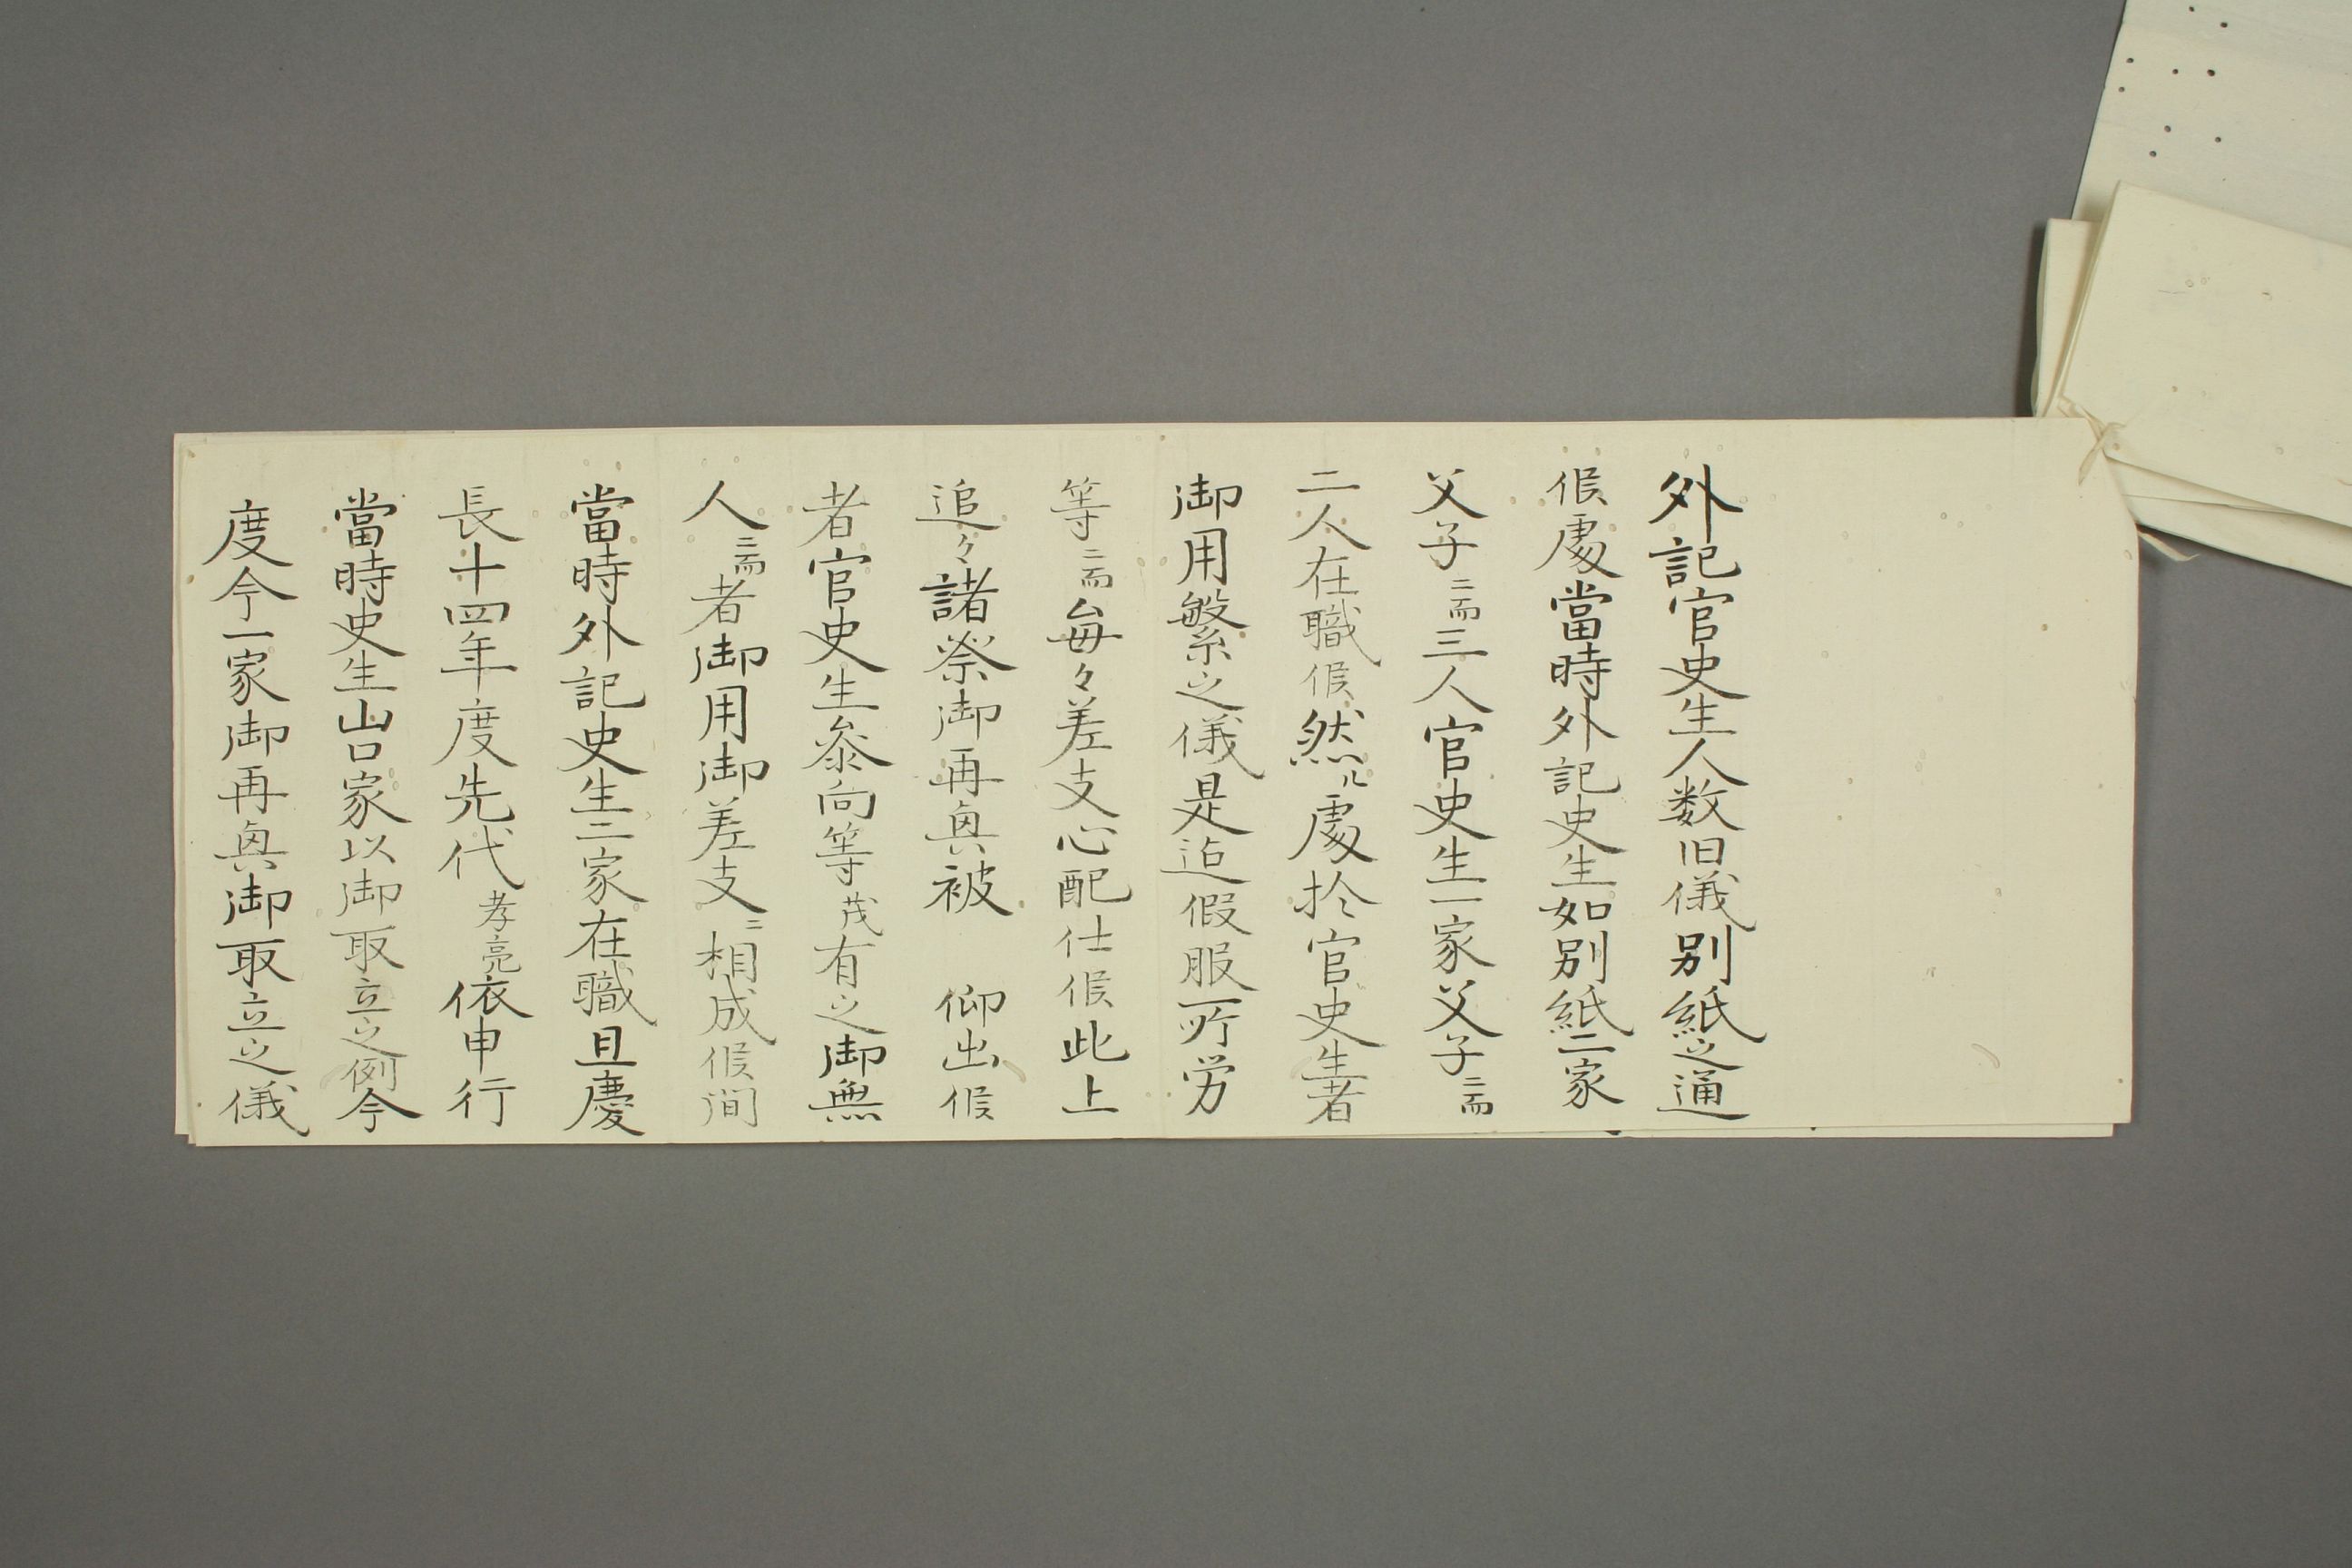 外記官史生人数旧儀別紙之通
候處當時外記史生如別紙二家
父子ニ而三人官史生一家父子ニ而
二人在職候然ル處於官史生者
御用繁之儀是迄假服所労
等ニ而毎々差支心配仕候此上
追々諸祭御再興被　仰出候
者官史生参向等茂有之御無
人ニ而者御用御差支ニ相成候間
當時外記史生二家在職且慶
長十四年度先代孝亮依申行
當時史生山口家以御取立之例今
度今一家御再興御取立之儀